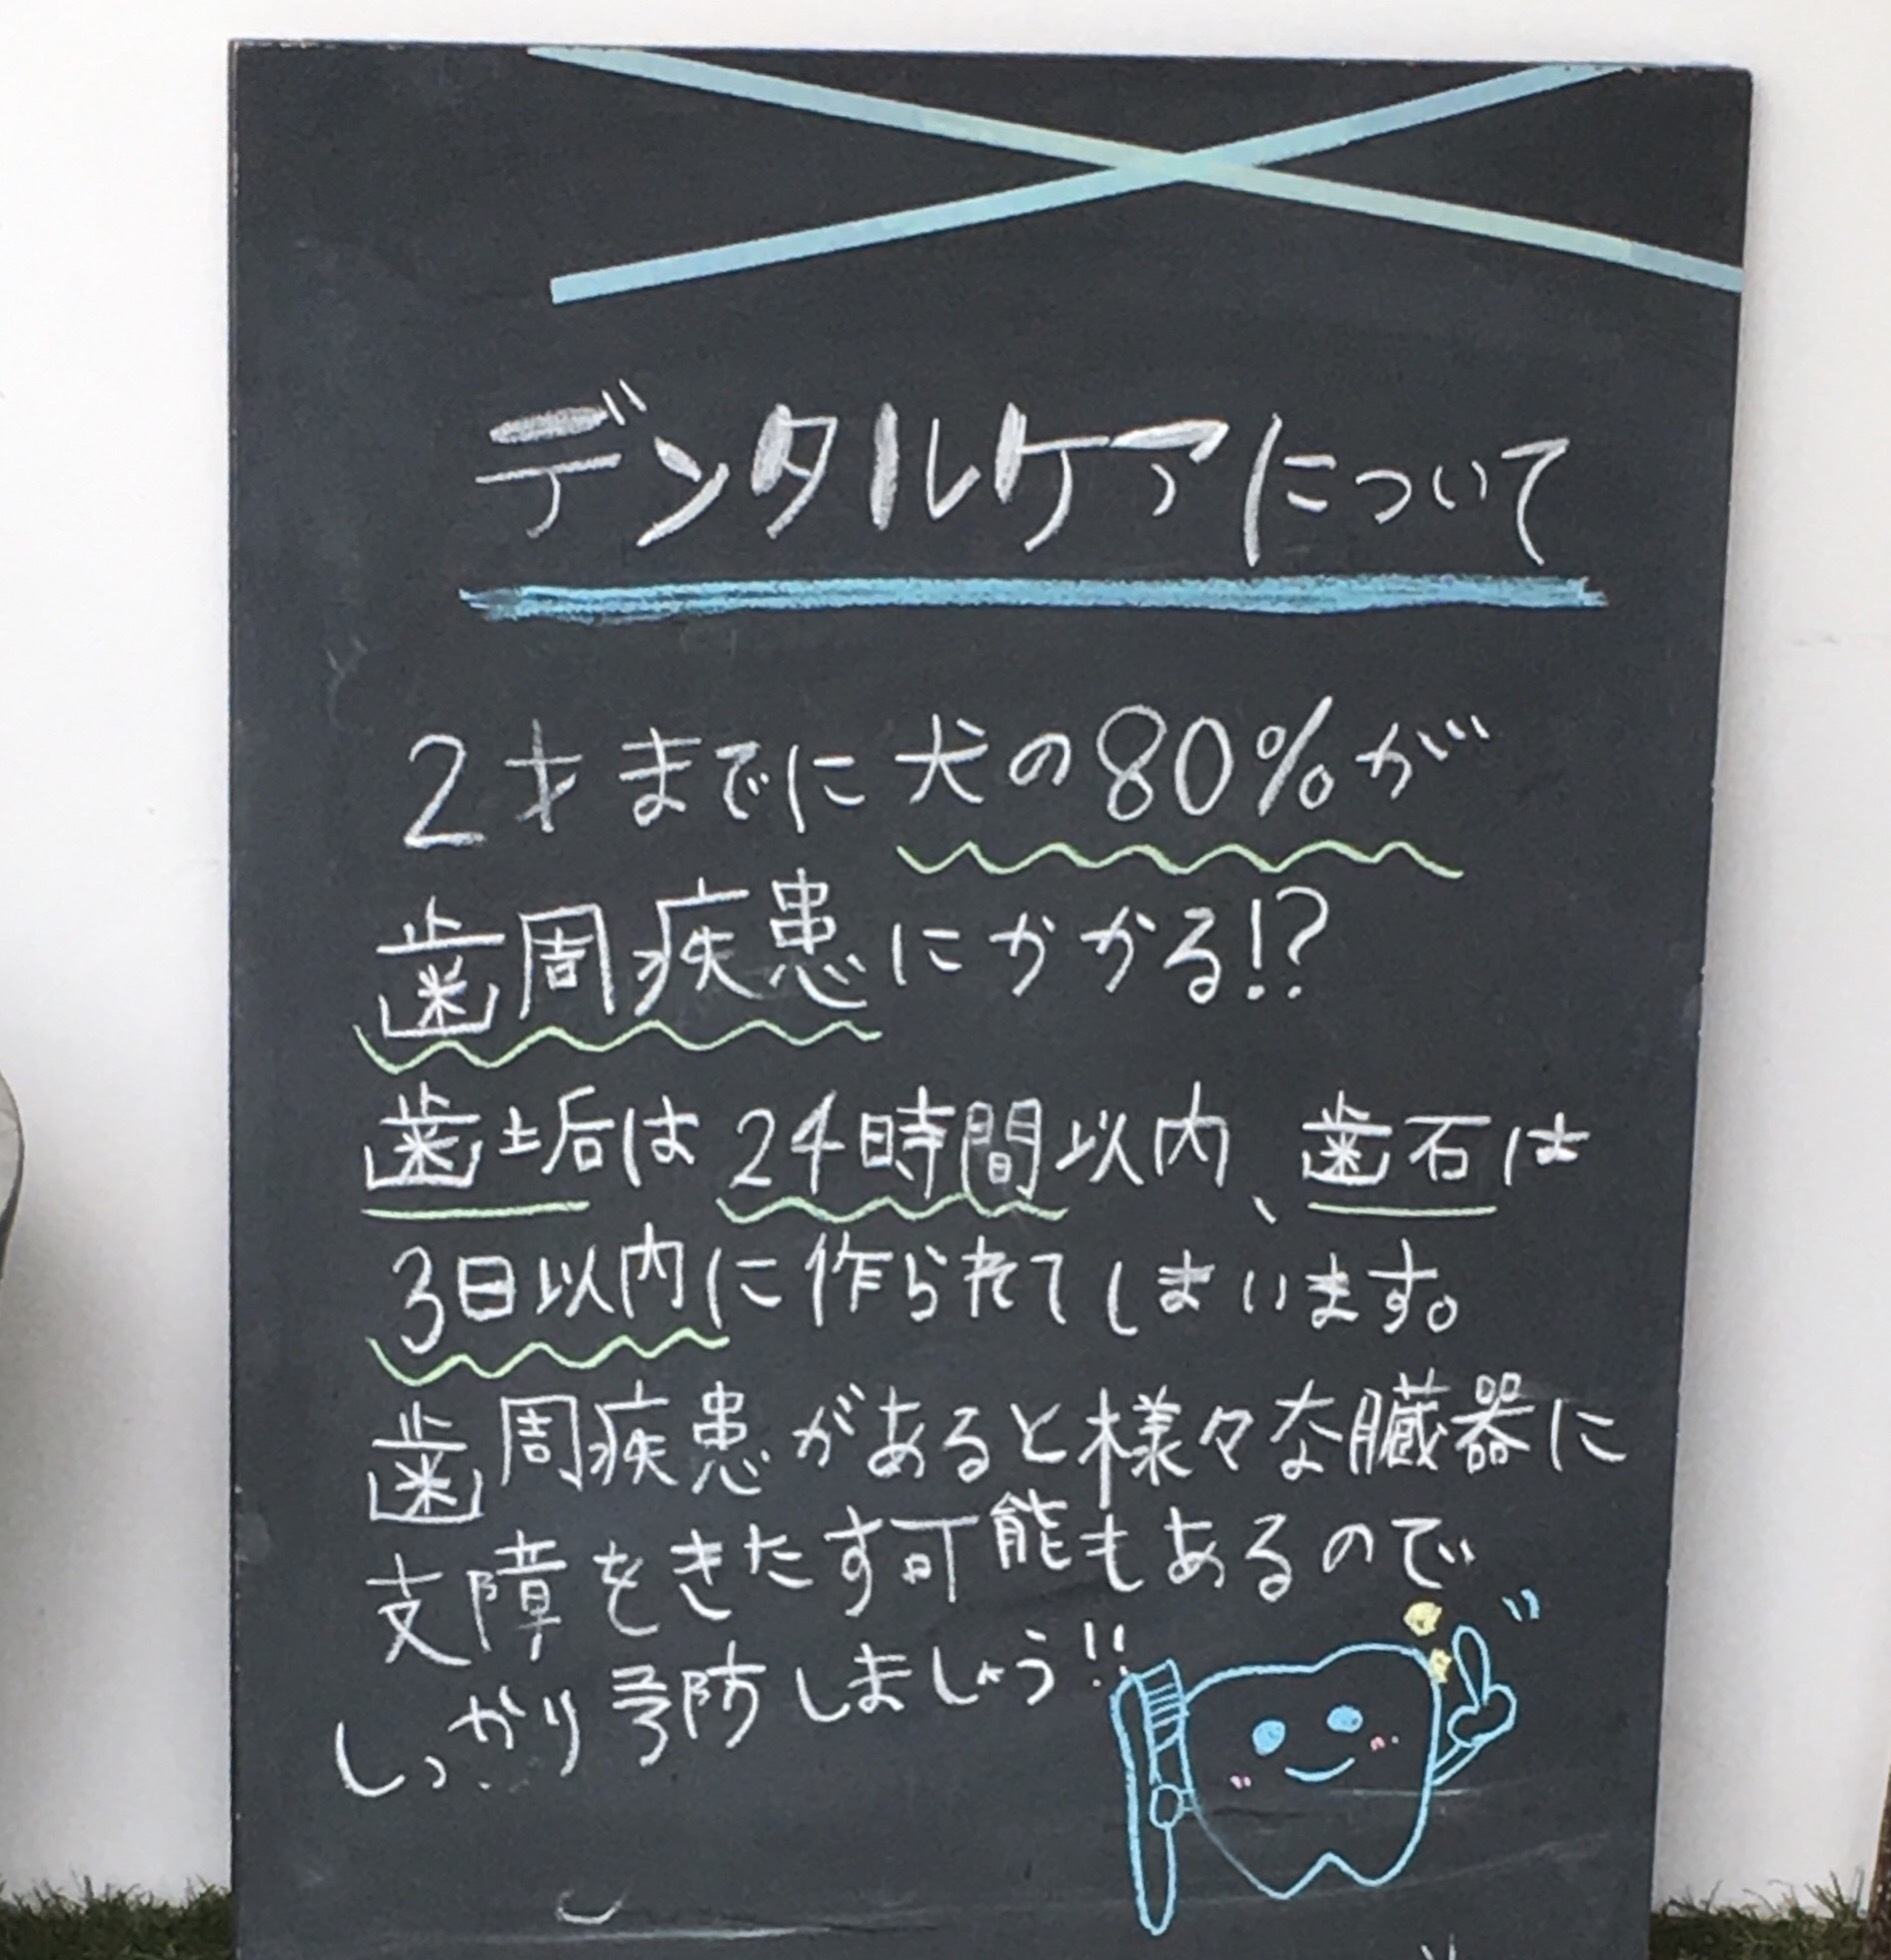 デンタルケアについて
2才までに犬の80%が
歯周疾患にかかる!?
歯垢は24時間以内、歯石は
3日以内に作られてしまいます。
歯周疾患があると様々な臓器に
支障をきたす可能もあるので
しっかり予防しましょう!!